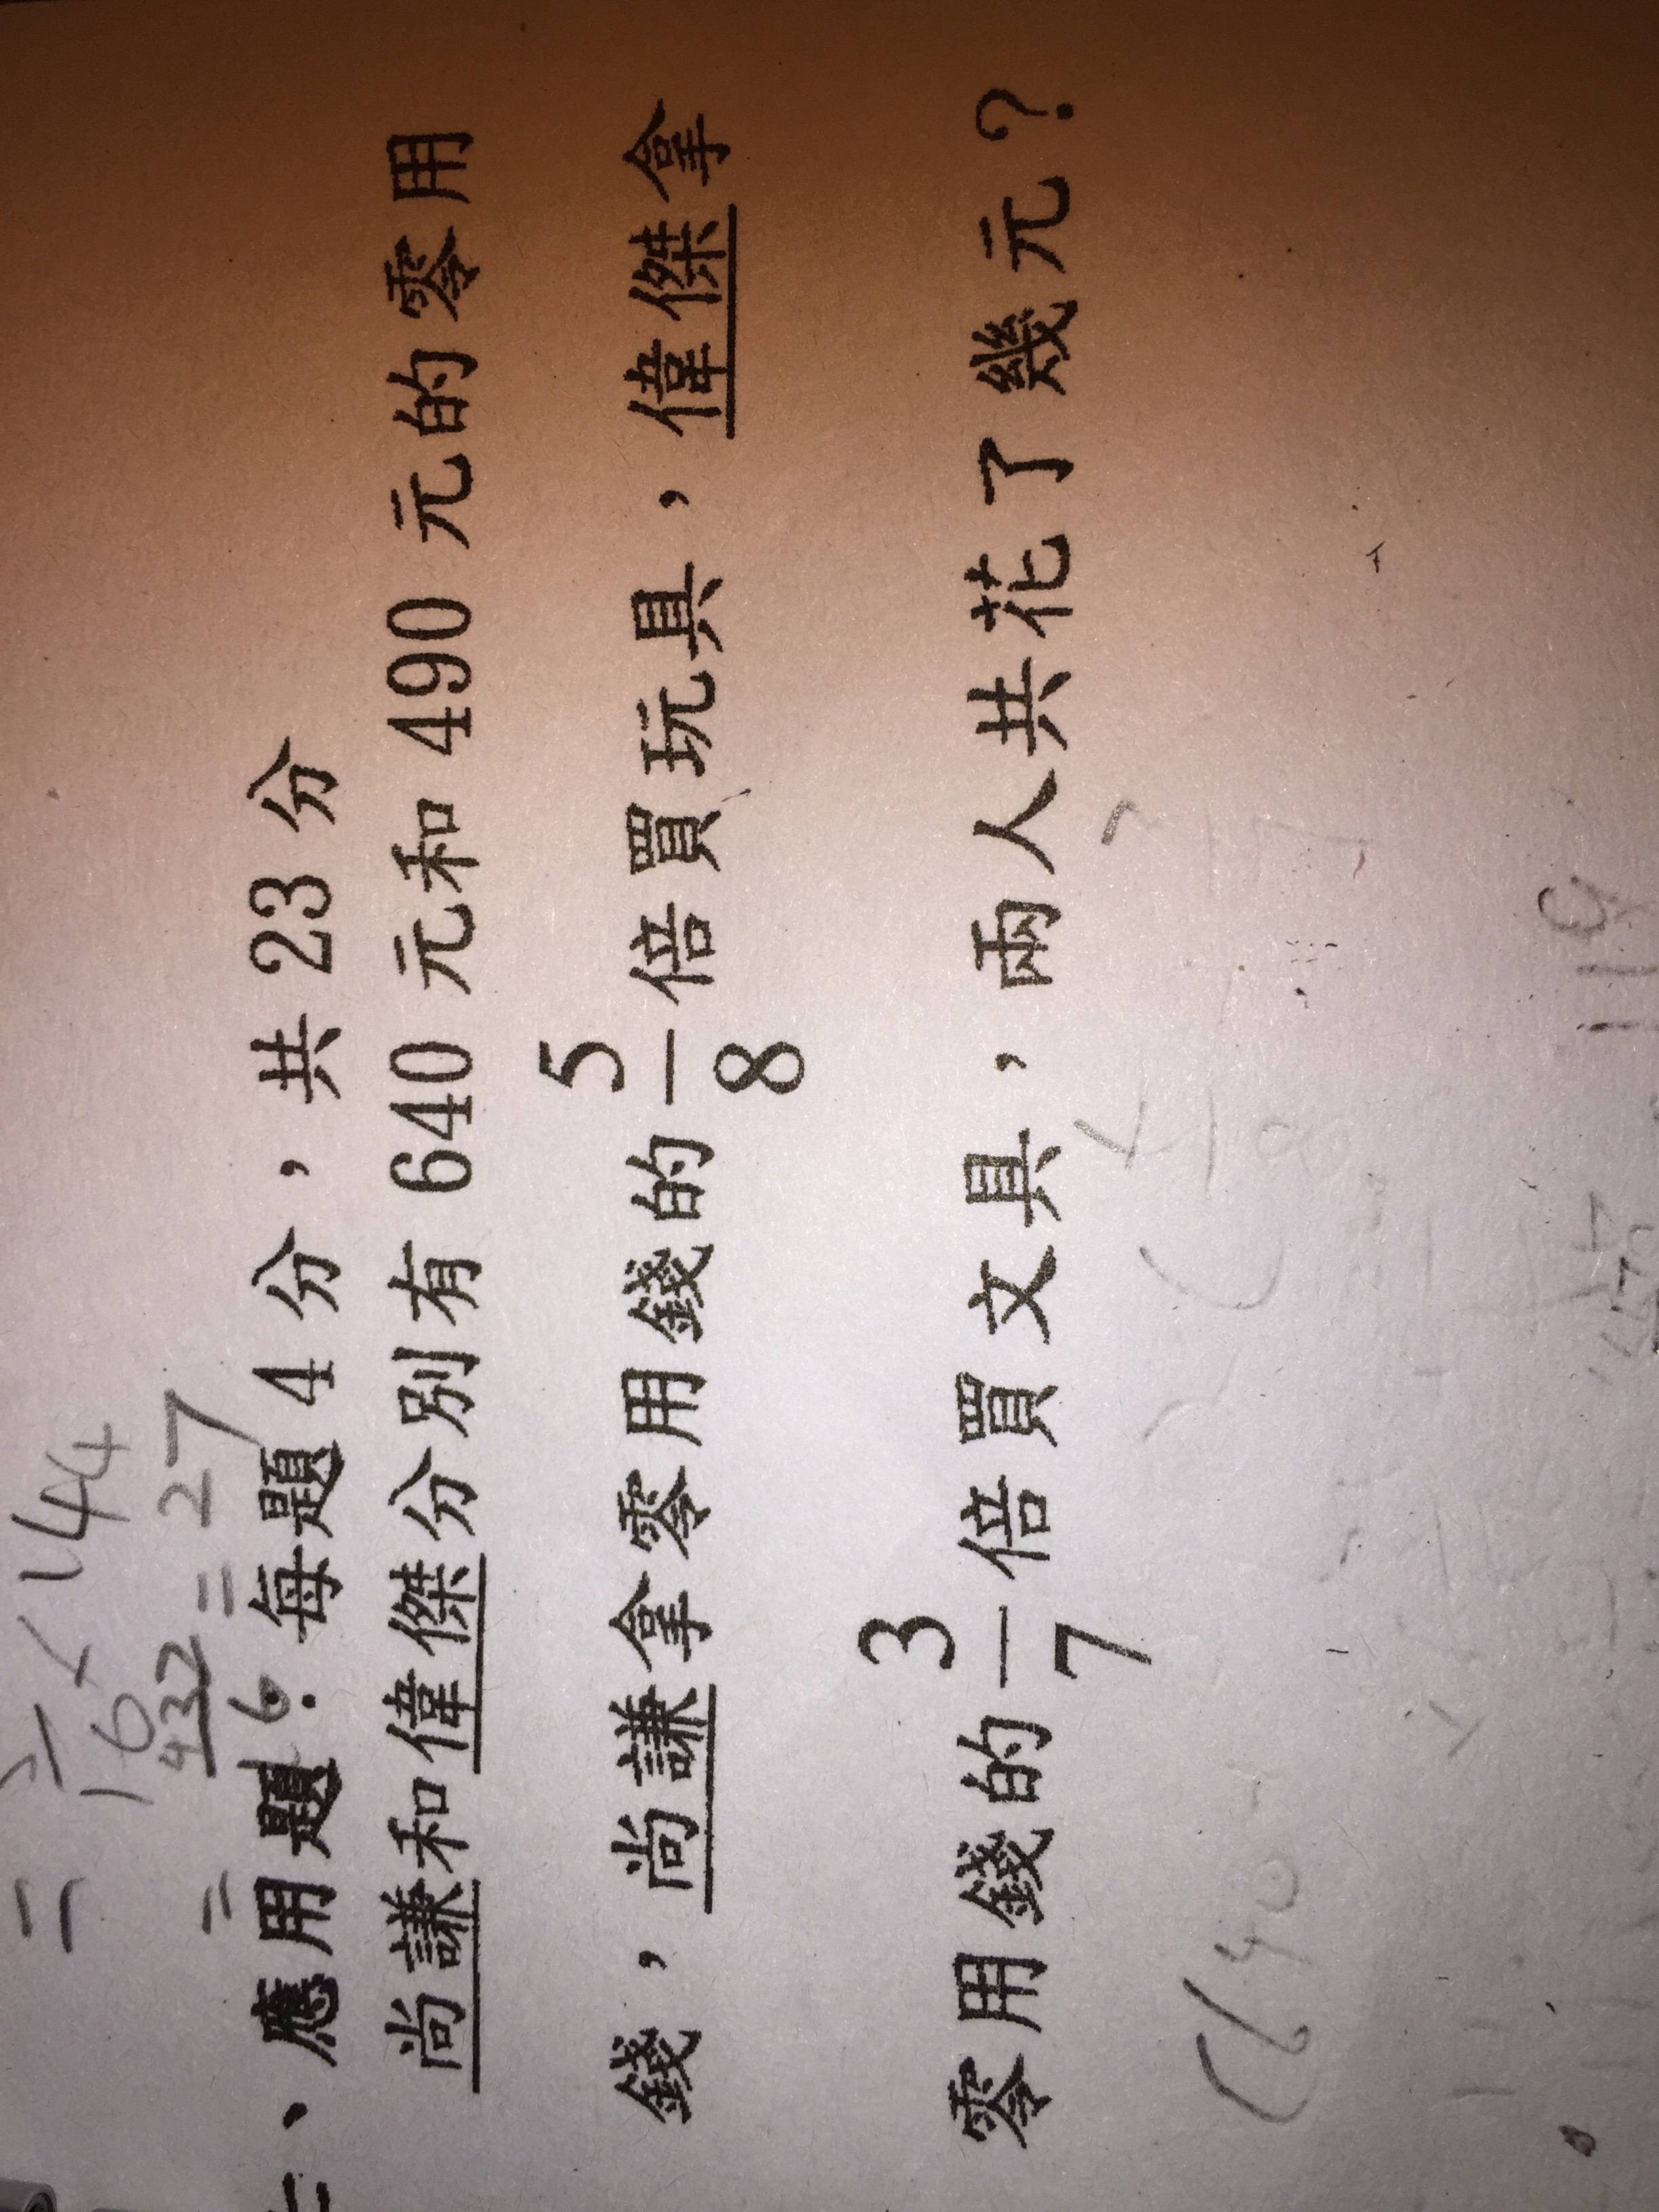 =16×144
=432=27
、應用題：每題 4 分，共 23 分
尚謙和偉傑分別有 640 元和 490 元的零用
錢，尚謙拿零用錢的 5/8 倍買玩具，偉傑拿
零用錢的 3/7 倍買文具，兩人共花了幾元？
(640